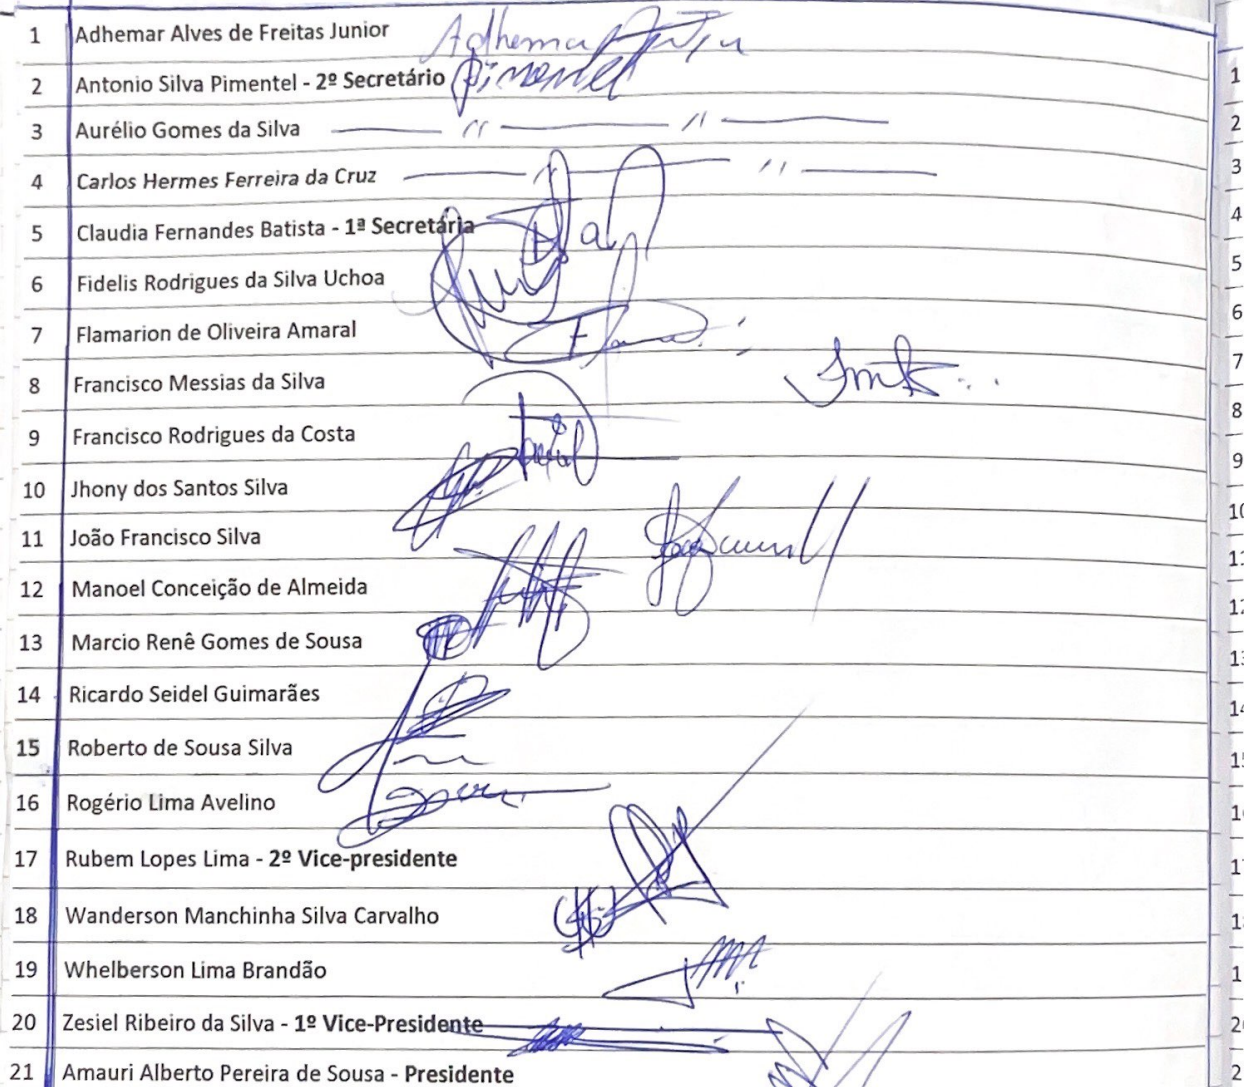 1 Adhemar Alves de Freitas Junior Adhemar
2 Antonio Silva Pimentel - 2º Secretário Pimentel
3 Aurélio Gomes da Silva
4 Carlos Hermes Ferreira da Cruz
5 Claudia Fernandes Batista - 1ª Secretária
6 Fidelis Rodrigues da Silva Uchoa
7 Flamarion de Oliveira Amaral
8 Francisco Messias da Silva
9 Francisco Rodrigues da Costa
10 Jhony dos Santos Silva
11 João Francisco Silva
12 Manoel Conceição de Almeida
13 Marcio Renê Gomes de Sousa
14 Ricardo Seidel Guimarães
15 Roberto de Sousa Silva
16 Rogério Lima Avelino
17 Rubem Lopes Lima - 2º Vice-presidente
18 Wanderson Manchinha Silva Carvalho
19 Whelberson Lima Brandão
20 Zesiel Ribeiro da Silva - 1º Vice-Presidente
21 Amauri Alberto Pereira de Sousa - Presidente
1
2
3
4
5
6
7
8
9